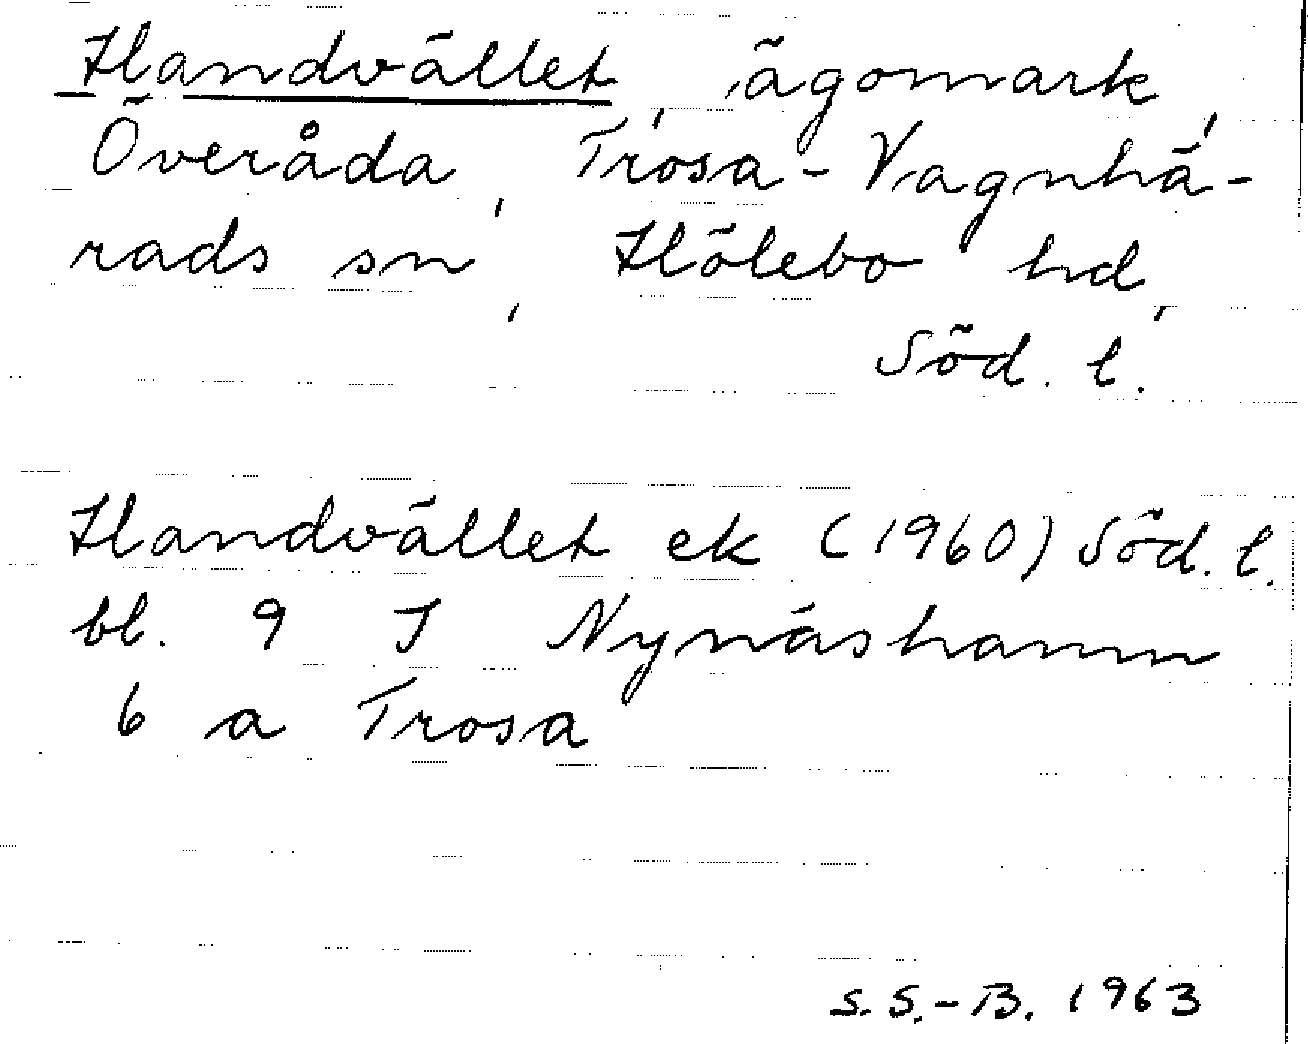 Handvället, ägomark,
Överåda, Trosa-Vagnhä-
rads sn, Hölebo hd,
Söd. l.
Handvället ek (1960) Söd. l.
bl. 9 I Nynäshamn
6 a Trosa
S. S.-B. 1963